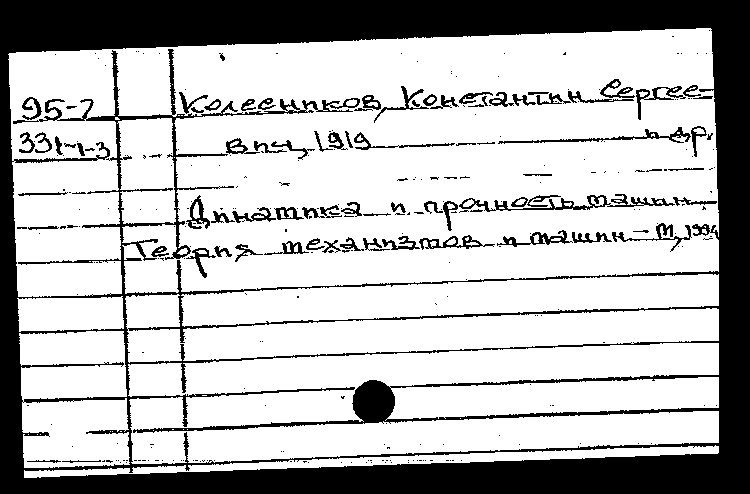 95-7 Колесников, Константин Сергее-
331-1-3 вич, 1919 и др.
Динамика и прочность машин.
Теория механизмов и машин. - М, 1994